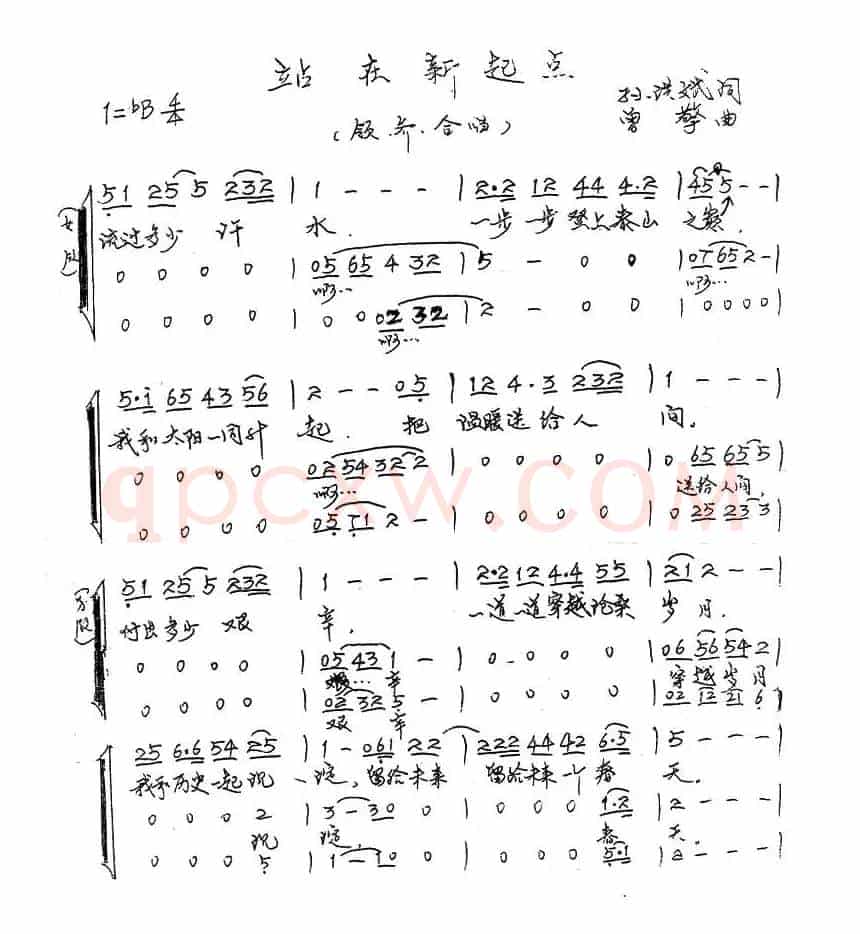 站在新起点
1=bB 4/4
孙洪斌词
(领.齐.合唱)
曾擎曲
51 255 232 | 1 - - - | 2·2 12 44 4·2 | 455 - - |
流过多少 汗 水. 一步一步登上泰山之巅.
0 0 0 0 | 05 65 4 32 | 5 - 0 0 | 07 65 2 - |
啊… 啊…
0 0 0 0 | 0 0 02 32 | 2 - 0 0 | 0 0 0 0 |
啊…
5·i 65 43 56 | 2 - - 05 | 12 4·3 232 | 1 - - - |
我和太阳一同升起. 把温暖送给人间.
0 0 0 0 | 02 54 32 2 | 0 0 0 0 | 0 65 65 5 |
啊… 送给人间,
0 0 0 0 | 05 71 2 - | 0 0 0 0 | 0 25 23 3 |
51 255 232 | 1 - - - | 2·2 12 4·4 55 | 21 2 - - |
付出多少 艰辛. 一道一道穿越沧桑岁月.
0 0 0 0 | 05 43 1 - | 0 0 0 0 | 06 56 54 2 |
艰… 辛 穿越岁月
0 0 0 0 | 02 32 5 - | 0 0 0 0 | 02 12 21 6 |
艰 辛
25 6·6 54 25 | 1 - 061 22 | 222 44 42 6·5 | 5 - - - |
我和历史一起沉淀, 留给未来 留给未来一个春天.
0 0 0 2 | 3 - 30 0 | 0 0 0 1·2 | 2 - - - |
沉淀. 春天.
0 0 0 5 | 1 - 10 0 | 0 0 0 5·1 | 2 - - - |
qpcxw.COM